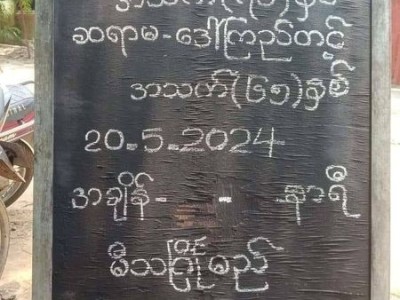 ဆရာမ-ဒေါ်ကြည်တင့်
အသက်(၆၅)နှစ်
20-5-2024
အချိန်- - နာရီ
မီသဂြိုဟ်မည်